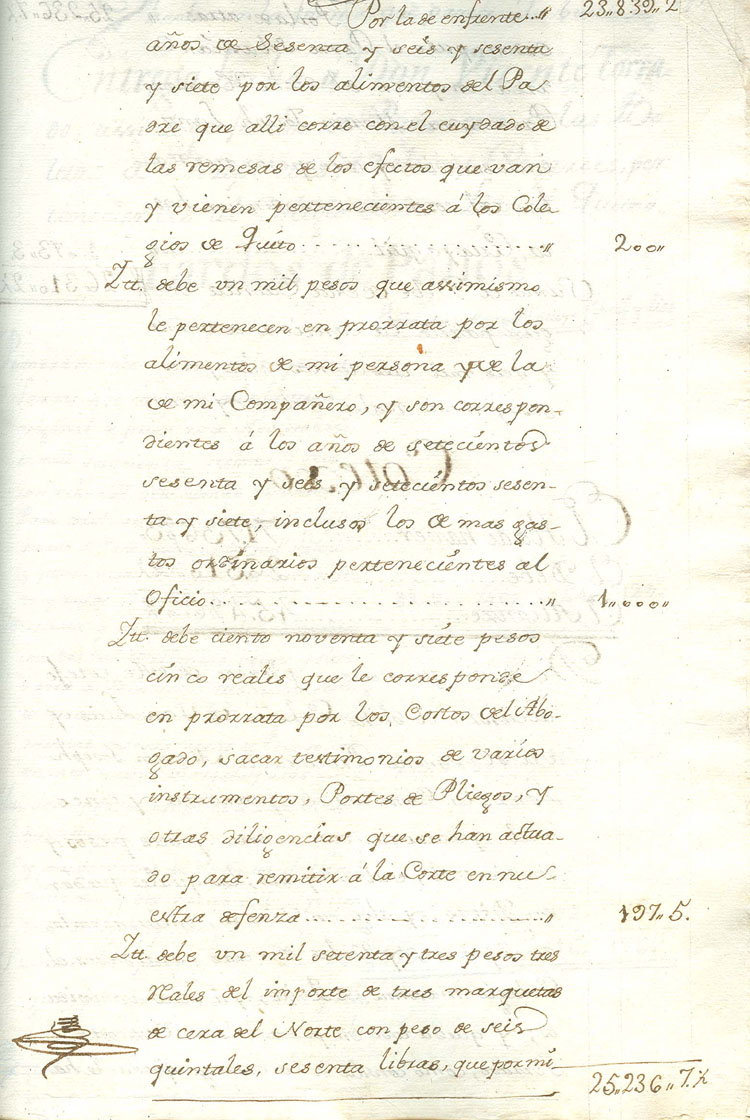 Por la de enfrente..„ 23„839„2.
años de Sesenta y seis y sesenta
y siete por los alimentos del Pa
dre que alli corre con el cuydado de
las remesas de los efectos que van
y vienen pertenecientes á los Cole
gios de Quito..........................„ 200„
Ytt. debe un mil pesos que assimismo
le pertenecen en prorrata por los
alimentos de mi persona y de la
de mi Compañero, y son correspon-
dientes á los años de setecientos
sesenta y seis y setecientos sesen-
ta y siete, inclusos los de mas gas-
tos ordinarios pertenecientes al
Oficio..........................................„ 1„000„
Ytt. debe ciento noventa y siete pesos
cinco reales que le corresponde
en prorrata por los Costos del Abo-
gado, sacar testimonios de varios
instrumentos, Portes de Pliegos, y
otras diligencias que se han actua-
do para remitir á la Corte en nu
estra defenza..............................„ 197„5.
Ytt. debe un mil setenta y tres pesos tres
Reales del importe de tres marquetas
de cera del Norte con peso de seis
quintales, sesenta libras, que por mi
25„236„7.½